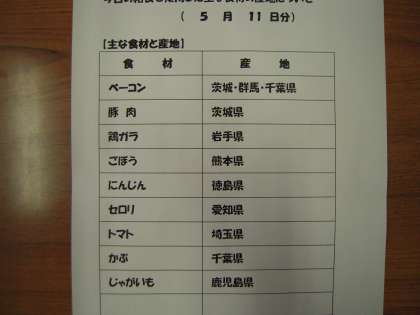 （ 5 月 11 日分）
【主な食材と産地】
食 材 産 地
ベーコン 茨城・群馬・千葉県
豚 肉 茨城県
鶏ガラ 岩手県
ごぼう 熊本県
にんじん 徳島県
セロリ 愛知県
トマト 埼玉県
かぶ 千葉県
じゃがいも 鹿児島県